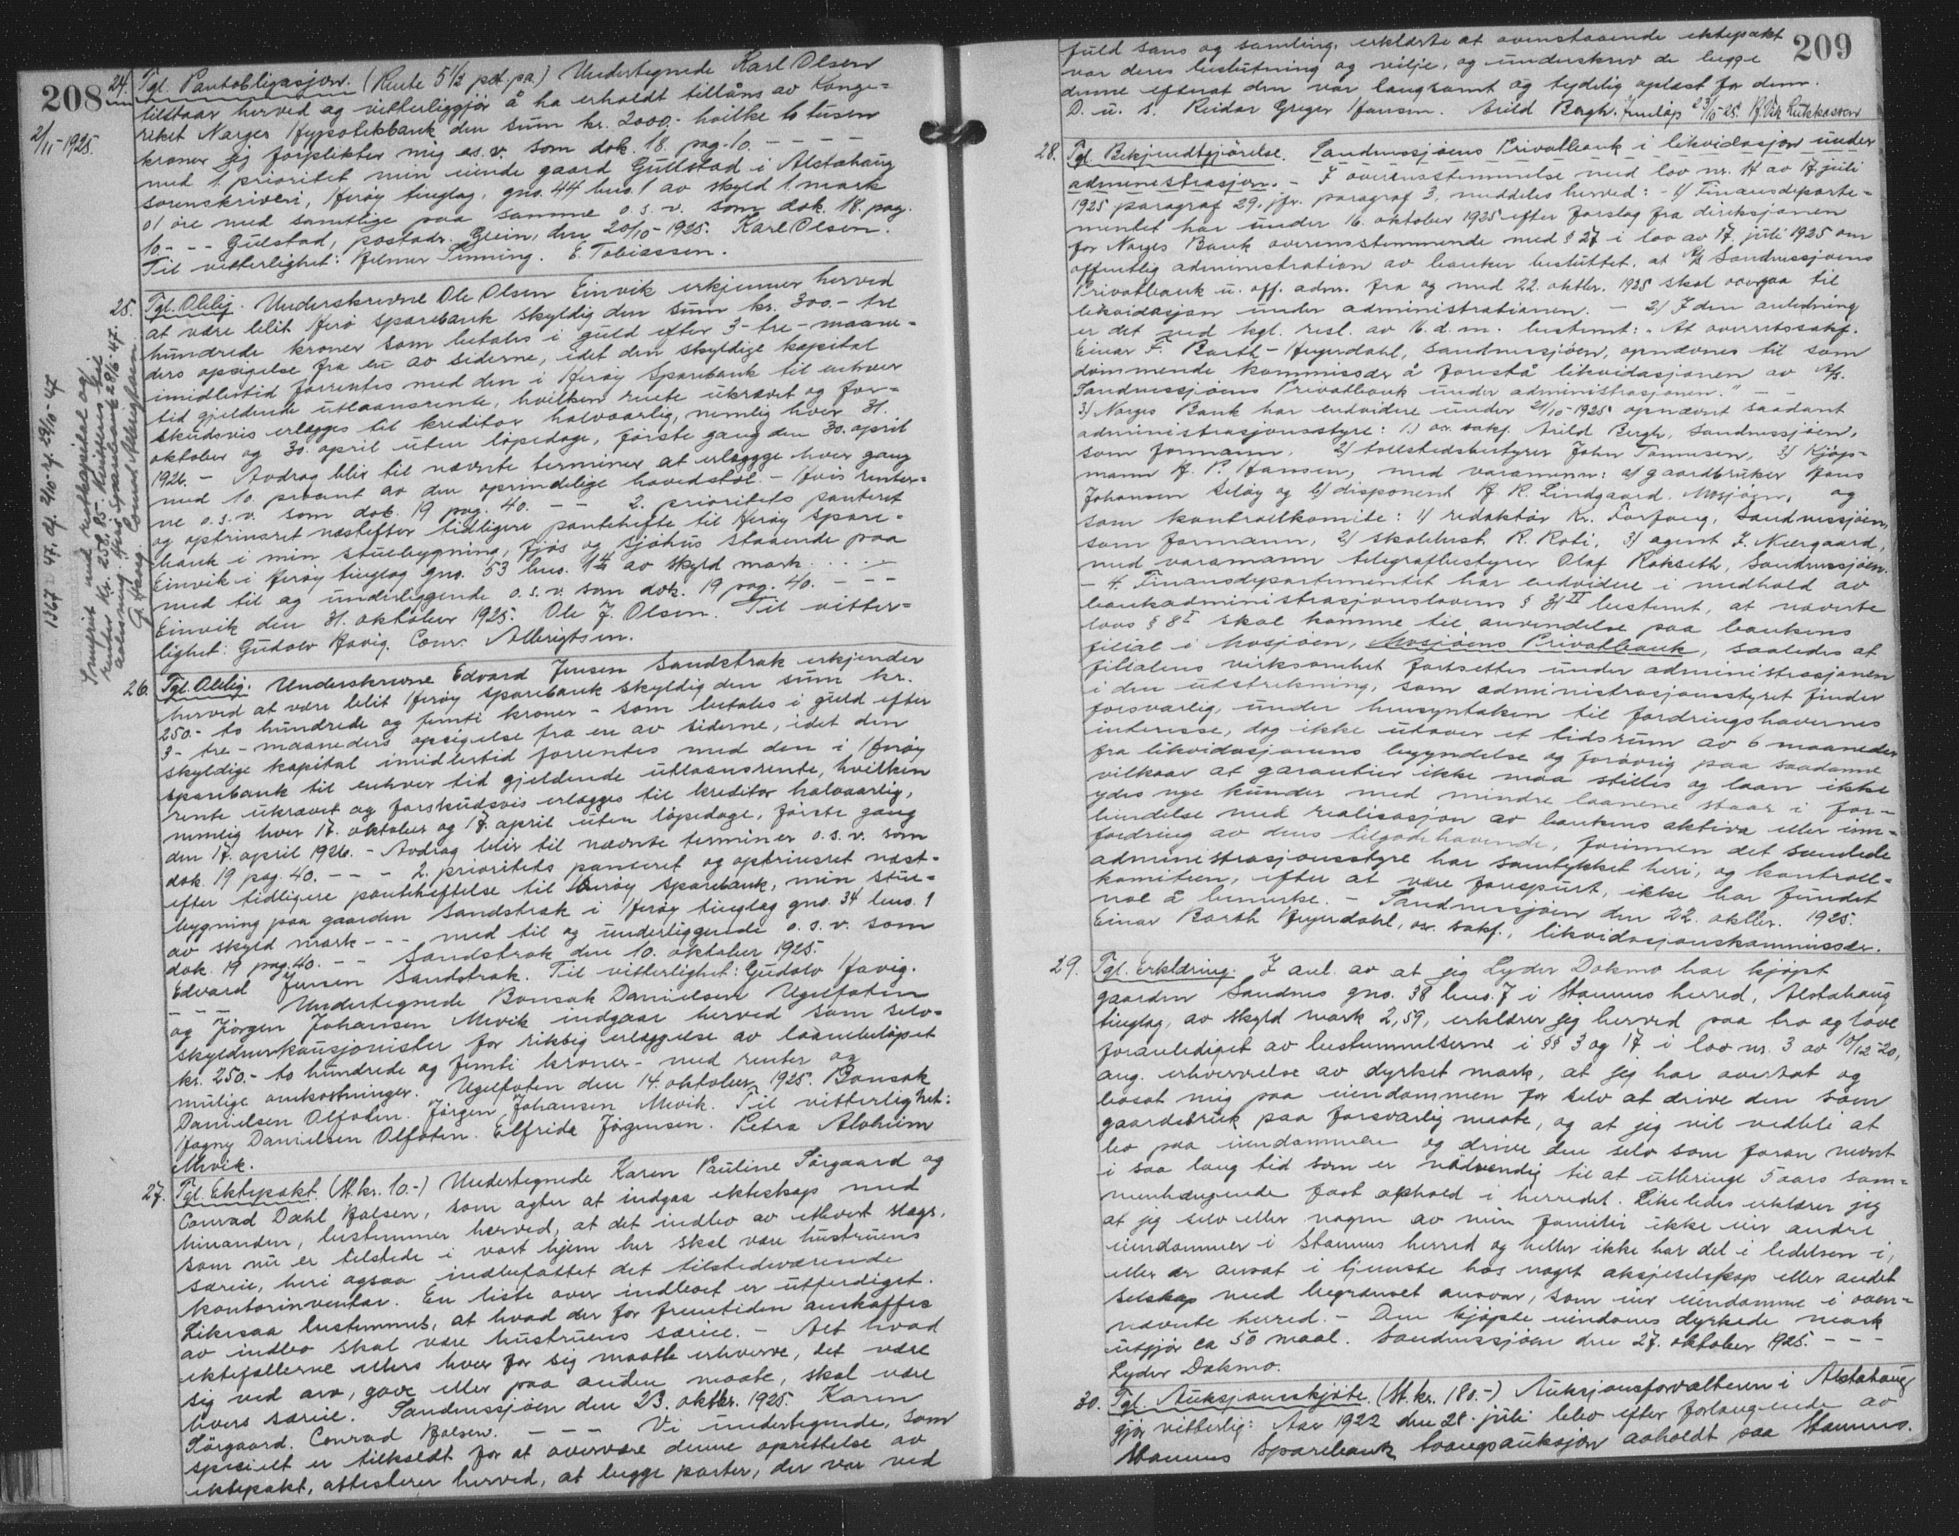 208
2/11-1925.
24. Tgl. Pantobligasjon. (Rente 5 1/2 pct. pa) Undertegnede Karl Olsen
tilstaar herved og vitterliggjør å ha erholdt tillåns av Konge-
riket Norges Hypotekbank den sum kr. 2000,- hvilke to tusen
kroner jeg forplikter mig o.s.v. som dok. 18. pag. 10. - - -
med 1. prioritet min eiende gaard Gullstad i Alstahaug
sorenskriveri, Herøy tinglag, gno. 44 bno. 1 av skyld 1 mark
01 øre med samtlige paa samme o.s.v. som dok. 18. pag.
10. - - Gulstad, postadr. Glein, den 20/10-1925. Karl Olsen.
Til vitterlighet: Hilmar Tinning. E. Tobiassen.
25. Tgl. Oblig. Underskrevne Ole Olsen Einvik erkjenner herved
at være blit Herø Sparebank skyldig den sum kr. 300.- tre
hundrede kroner som betales i guld efter 3-tre-maane-
ders opsigelse fra en av siderne, idet den skyldige kapital
imidlertid forrentes med den i Herøy Sparebank til enhver
tid gjeldende utlaansrente, hvilken rente ukrævet og for-
skudsvis erlægges til kreditor halvaarlig, nemlig hver 31.
oktober og 30. april uten løpedage, første gang den 30. april
1926. - Avdrag blir til nævnte terminer at erlægge hver gang
med 10 procent av den oprindelige hovedstol. - Hvis renter-
ne o.s.v. som dok. 19 pag. 40. - - 2. prioritets panteret
og optrinsret næstefter tidligere panteheftelse til Herøy Spare-
bank i min stuebygning, fjøs og sjøhus staaende paa
Einvik i Herøy tinglag gno. 53 bno. av skyld mark . . . -
med til og underliggende o.s.v. som dok. 19 pag. 40. - - -
Einvik den 31. oktober 1925. Ole J. Olsen. Til vitter-
lighet: Gudolv Havig. Conr. Albrigtsen.
1367 47. dj. 2/10 - 29/10-47
Innfrit med restkapital og
renter kr. 258,85. Kvitteres til
avlesning. Herøy Sparebank 28/6 47.
G. Haug Conrad Albrigtsen.
26. Tgl. Oblig. Underskrevne Edvard Jensen Sandstrak erkjender
herved at være blit Herøy Sparebank skyldig den sum kr.
250.- to hundrede og femti kroner - som betales i guld efter
3- tre - maaneders opsigelse fra en av siderne, idet den
skyldige kapital imidlertid forrentes med den i Herøy
Sparebank til enhver tid gjeldende utlaansrente, hvilken
rente ukrævet og forskudsvis erlægges til kreditor halvaarlig,
nemlig hver 17. oktober og 17. april uten løpedage, første gang
den 17. april 1926. - Avdrag blir til nævnte terminer o.s.v. som
dok. 19 pag. 40. - - - 2. prioritets panteret og optrinsret næst-
efter tidligere panteheftelse til Herøy Sparebank, min stue-
bygning paa gaarden Sandstrak i Herøy tinglag gno. 34 bno. 1
av skyld mark - - - med til og underliggende o.s.v. som
dok. 19 pag. 40. - - Sandstrak den 10. oktober 1925.
Edvard Jensen Sandstrak. Til vitterlighet: Gudolv Havig.
- - - Undertegnede Bonsak Danielsen Ugelfoten
og Jörgen Johansen Mevik indgaar herved som selv-
skyldnerkausjonister for riktig erlæggelse av laanebeløpet
kr. 250.- to hundrede og femti kroner - med renter og
mulige omkostninger. Ugelfoten den 14. oktober 1925. Bonsak
Danielsen Olfoten. Jörgen Johansen Mevik. Til vitterlighet:
Hagny Danielsen Olfoten. Elfride Jörgensen. Petra Alvheim
Mevik.
27. Tgl. Ektepakt. (St. kr. 10.-) Undertegnede Karen Pauline Sörgaard og
Conrad Dahl Balsen, som agter at indgaa ekteskap med
hinanden, bestemmer herved, at det indbo av ethvert slags,
som nu er tilstede i vort hjem her skal være hustruens
særeie, heri ogsaa indbefattet det tilstedeværende
kontorinventar. En liste over indboet er utferdiget.
Likesaa bestemmes, at hvad der for fremtiden anskaffes
av indbo skal være hustruens særeie. - Alt hvad
ektefællerne ellers hver for sig maatte erhverve, det være
sig ved arv, gave eller paa anden maate, skal være
hvers særeie. Sandnessjöen den 23. oktbr. 1925. Karen
Sörgaard. Conrad Balsen. - - - Vi undertegnede, som
specielt er tilkaldt for at overvære denne oprettelse av
ektepakt, attesterer herved, at begge parter, der var ved
209
fuld sans og samling, erklærte at ovenstaaende ektepakt
var deres beslutning og vilje, og underskrev de begge
denne efterat den var langsomt og tydelig oplæst for dem.
D. u. s. Reidar Greger Hansen. Arild Bergh.
28. Tgl. Bekjendtgjörelse. Sandnessjöens Privatbank i likvidasjon under
administrasjon. - I overensstemmelse med lov nr. 14 av 17. juli
1925 paragraf 29, jfr. paragraf 3, meddeles herved: - 1/ Finansdeparte-
mentet har under 16. oktober 1925 efter forslag fra direksjonen
for Norges Bank overensstemmende med § 27 i lov av 17. juli 1925 om
offentlig administration av banker besluttet, at A/S Sandnessjöens
Privatbank u. off. adm. fra og med 22. oktbr. 1925 skal overgaa til
likvidasjon under administrationen. - 2/ I den anledning
er det ved kgl. resl. av 16. d.m. bestemt: "At overretssakf.
Einar F. Barth-Heyerdahl, Sandnessjöen, opnævnes til som
dømmende kommissær å forestå likvidasjonen av A/S.
Sandnessjöens Privatbank under administrasjonen." - -
3/ Norges Bank har endvidere under 21/10-1925 opnævnt saadant
administrasjonsstyre: 1.) ov. sakf. Arild Bergh, Sandnessjöen,
som formann, 2/ tollstedsbestyrer John Tønnesen, 3/ Kjøp-
mann H. P. Hansen, med varamenn: a/ gaardbruker Hans
Johansen Selöy og b/ disponent H. R. Lindgaard. Mosjøen, og
som kontrollkomite: 1/ redaktør Kr. Forfang, Sandnessjöen,
som formann, 2/ skolebest. R. Roti, 3/ agent J. Nergaard,
med varamann telegrafbestyrer Olaf Rokseth, Sandnessjöen.
- 4. Finansdepartementet har endvidere i medhold av
bankadministrasjonslovens § 31 II bestemt, at nævnte
lovs § 8 I skal komme til anvendelse paa bankens
filial i Mosjøen, Mosjøens Privatbank, saaledes at
filialens virksomhet fortsettes under administrasjonen
i den utstrekning, som administrasjonsstyret finder
forsvarlig, under hensyntaken til fordringshavernes
interesse, dog ikke utover et tidsrum av 6 maaneder
fra likvidasjonens begyndelse og forøvrig paa saadanne
vilkaar at garantier ikke maa stilles og laan ikke
ydes nye kunder med mindre laanene staar i for-
bindelse med realisasjon av bankens aktiva eller inn-
fordring av dens tilgodehavende, forinnen det samlede
administrasjonsstyre har samtykket heri, og kontroll-
komiteen, efter at være forespurt, ikke har fundet
noe å bemerke. - Sandnessjöen den 22. oktbr. 1925.
Einar Barth Heyerdahl, ov. sakf., likvidasjonskommissær.
29. Tgl. Erklæring. I anl. av at jeg Lyder Dokmo har kjøpt
gaarden Sandnes gno. 38 bno. 7 i Stamnes herred, Alstahaug
tinglag, av skyld mark 2,59, erklærer jeg herved paa tro og love
foranlediget av bestemmelserne i §§ 3 og 17 i lov nr. 3 av 10/12-20,
ang. erhvervelse av dyrket mark, at jeg har overtat og
bosat mig paa eiendommen for selv at drive den som
gaardsbruk paa forsvarlig maate, og at jeg vil vedbli at
bo paa eiendommen og drive den selv som foran nevnt
i saa lang tid som er nödvendig til at utbringe 5 aars sam-
menhængende fast ophold i herredet. Likeledes erklærer jeg
at jeg selv eller nogen av min familie ikke eier andre
eiendommer i Stamnes herred og heller ikke har del i ledelsen i,
eller er ansat i tjeneste hos noget aksjeselskap eller andet
selskap med begrænset ansvar, som eier eiendomme i oven-
nævnte herred. - Den kjøpte eiendoms dyrkede mark
utgjør ca 50 maal. Sandnessjöen den 27. oktober 1925. - - -
Lyder Dokmo.
30. Tgl. Auksjonsskjöte. (St. kr. 180.-) Auksjonsforvalteren i Alstahaug
gjør vitterlig: Aar 1922 den 28. juli blev efter forlangende av
Stamnes Sparebank tvangsauksjon avholdt paa Stamnes.